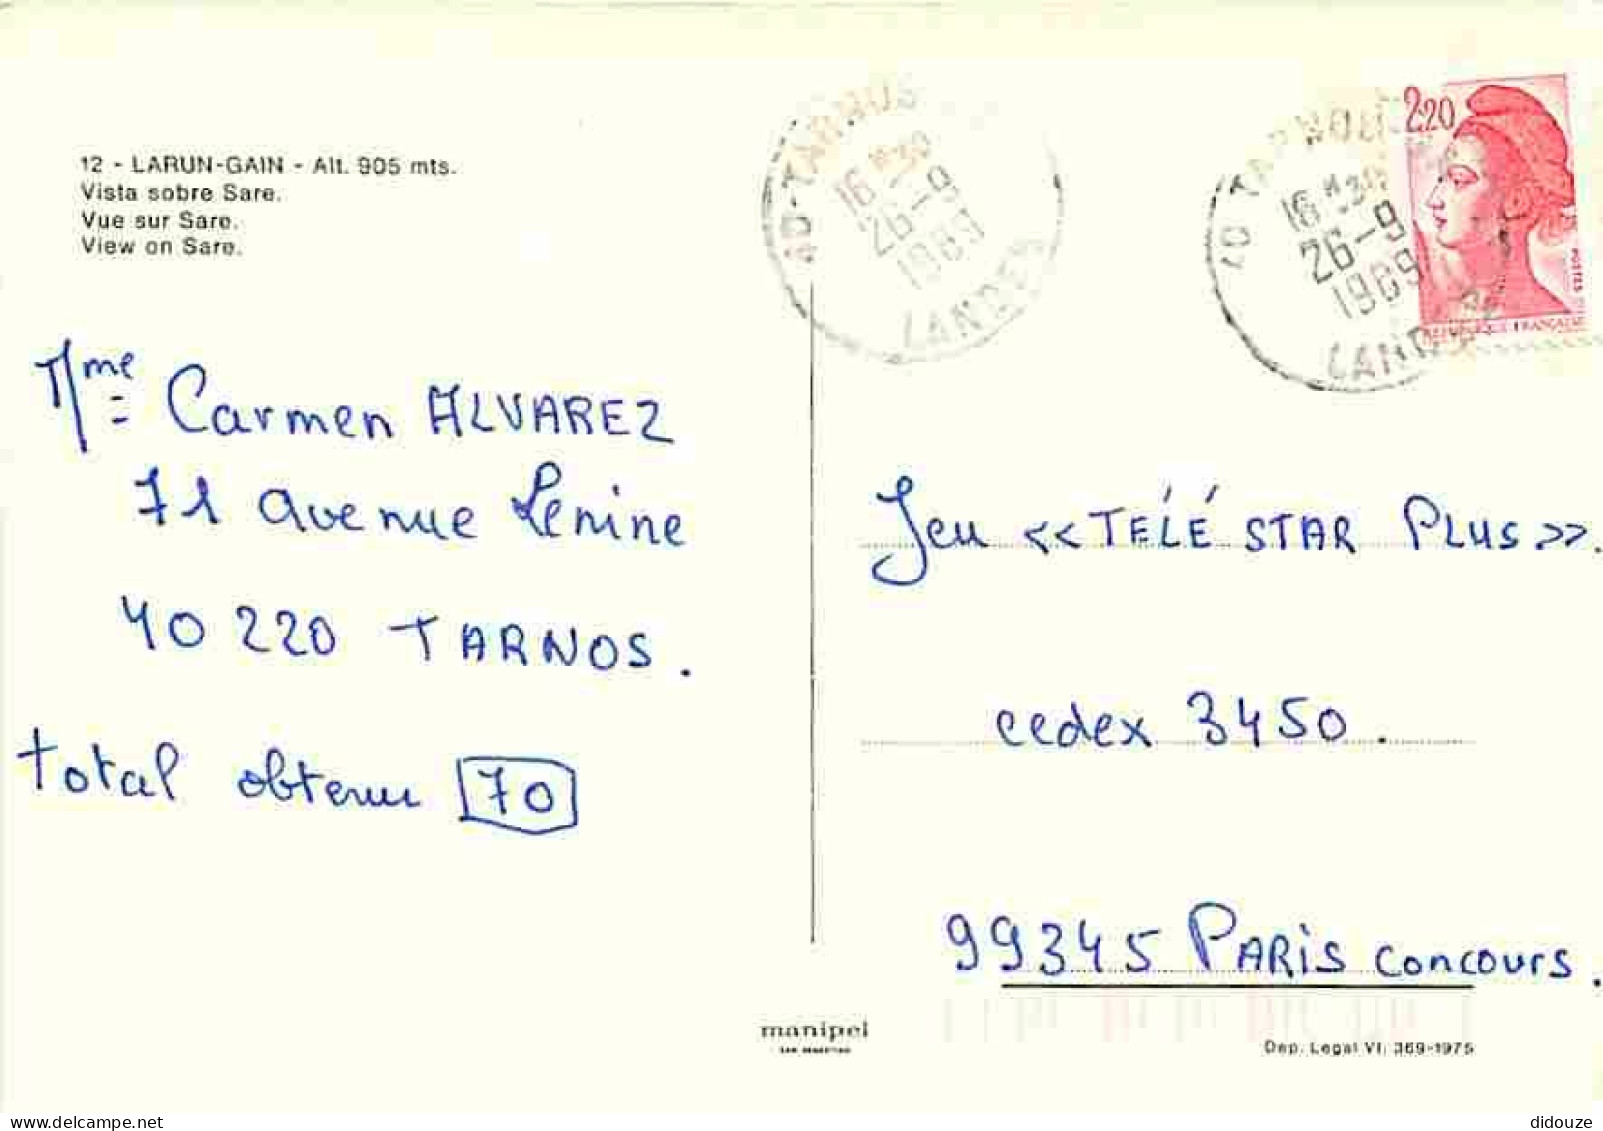 12 - LARUN-GAIN - Alt. 905 mts.
Vista sobre Sare.
Vue sur Sare.
View on Sare.
40-TARNOS
16 H 30
26-9
1989
LANDES
40 TARNOS
16 H 30
26-9
1989
LANDES
2,20
POSTES
REPUBLIQUE FRANÇAISE
Mme Carmen ALVAREZ
71 avenue Lenine
40 220 TARNOS.
total obtenu 70
Jeu <<TÉLÉ STAR PLUS>>.
cedex 3450.
99345 PARIS concours.
manipel
SAN SEBASTIAN
Dep. Legal VI. 369-1975
didouze